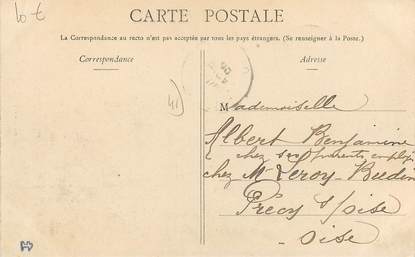 10 €
CARTE POSTALE
La Correspondance au recto n'est pas acceptée par tous les pays étrangers. (Se renseigner à la Poste.)
Correspondance
Adresse
41
Mademoiselle
Albert Benjamine
chez ses parents,
chez Mr Leroy-Budin
Precy s/oise
Oise